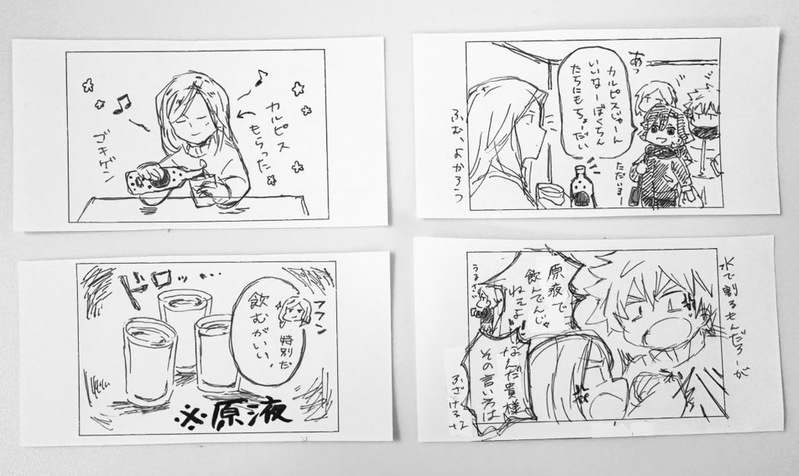 カルピス
もらった
ゴキゲン
あっ
カルピスじゃーん
いいなーぼくちん
たちにもちょーだい
ただいまー
ふむ、よかろう
ドロッ…
フフン
特別だ
飲むがいい、
※原液
水で割るもんだろーが
原液で
飲んでんじゃ
ねぇよ
うるさい
なんだ貴様
その言い方は
ふざけるな